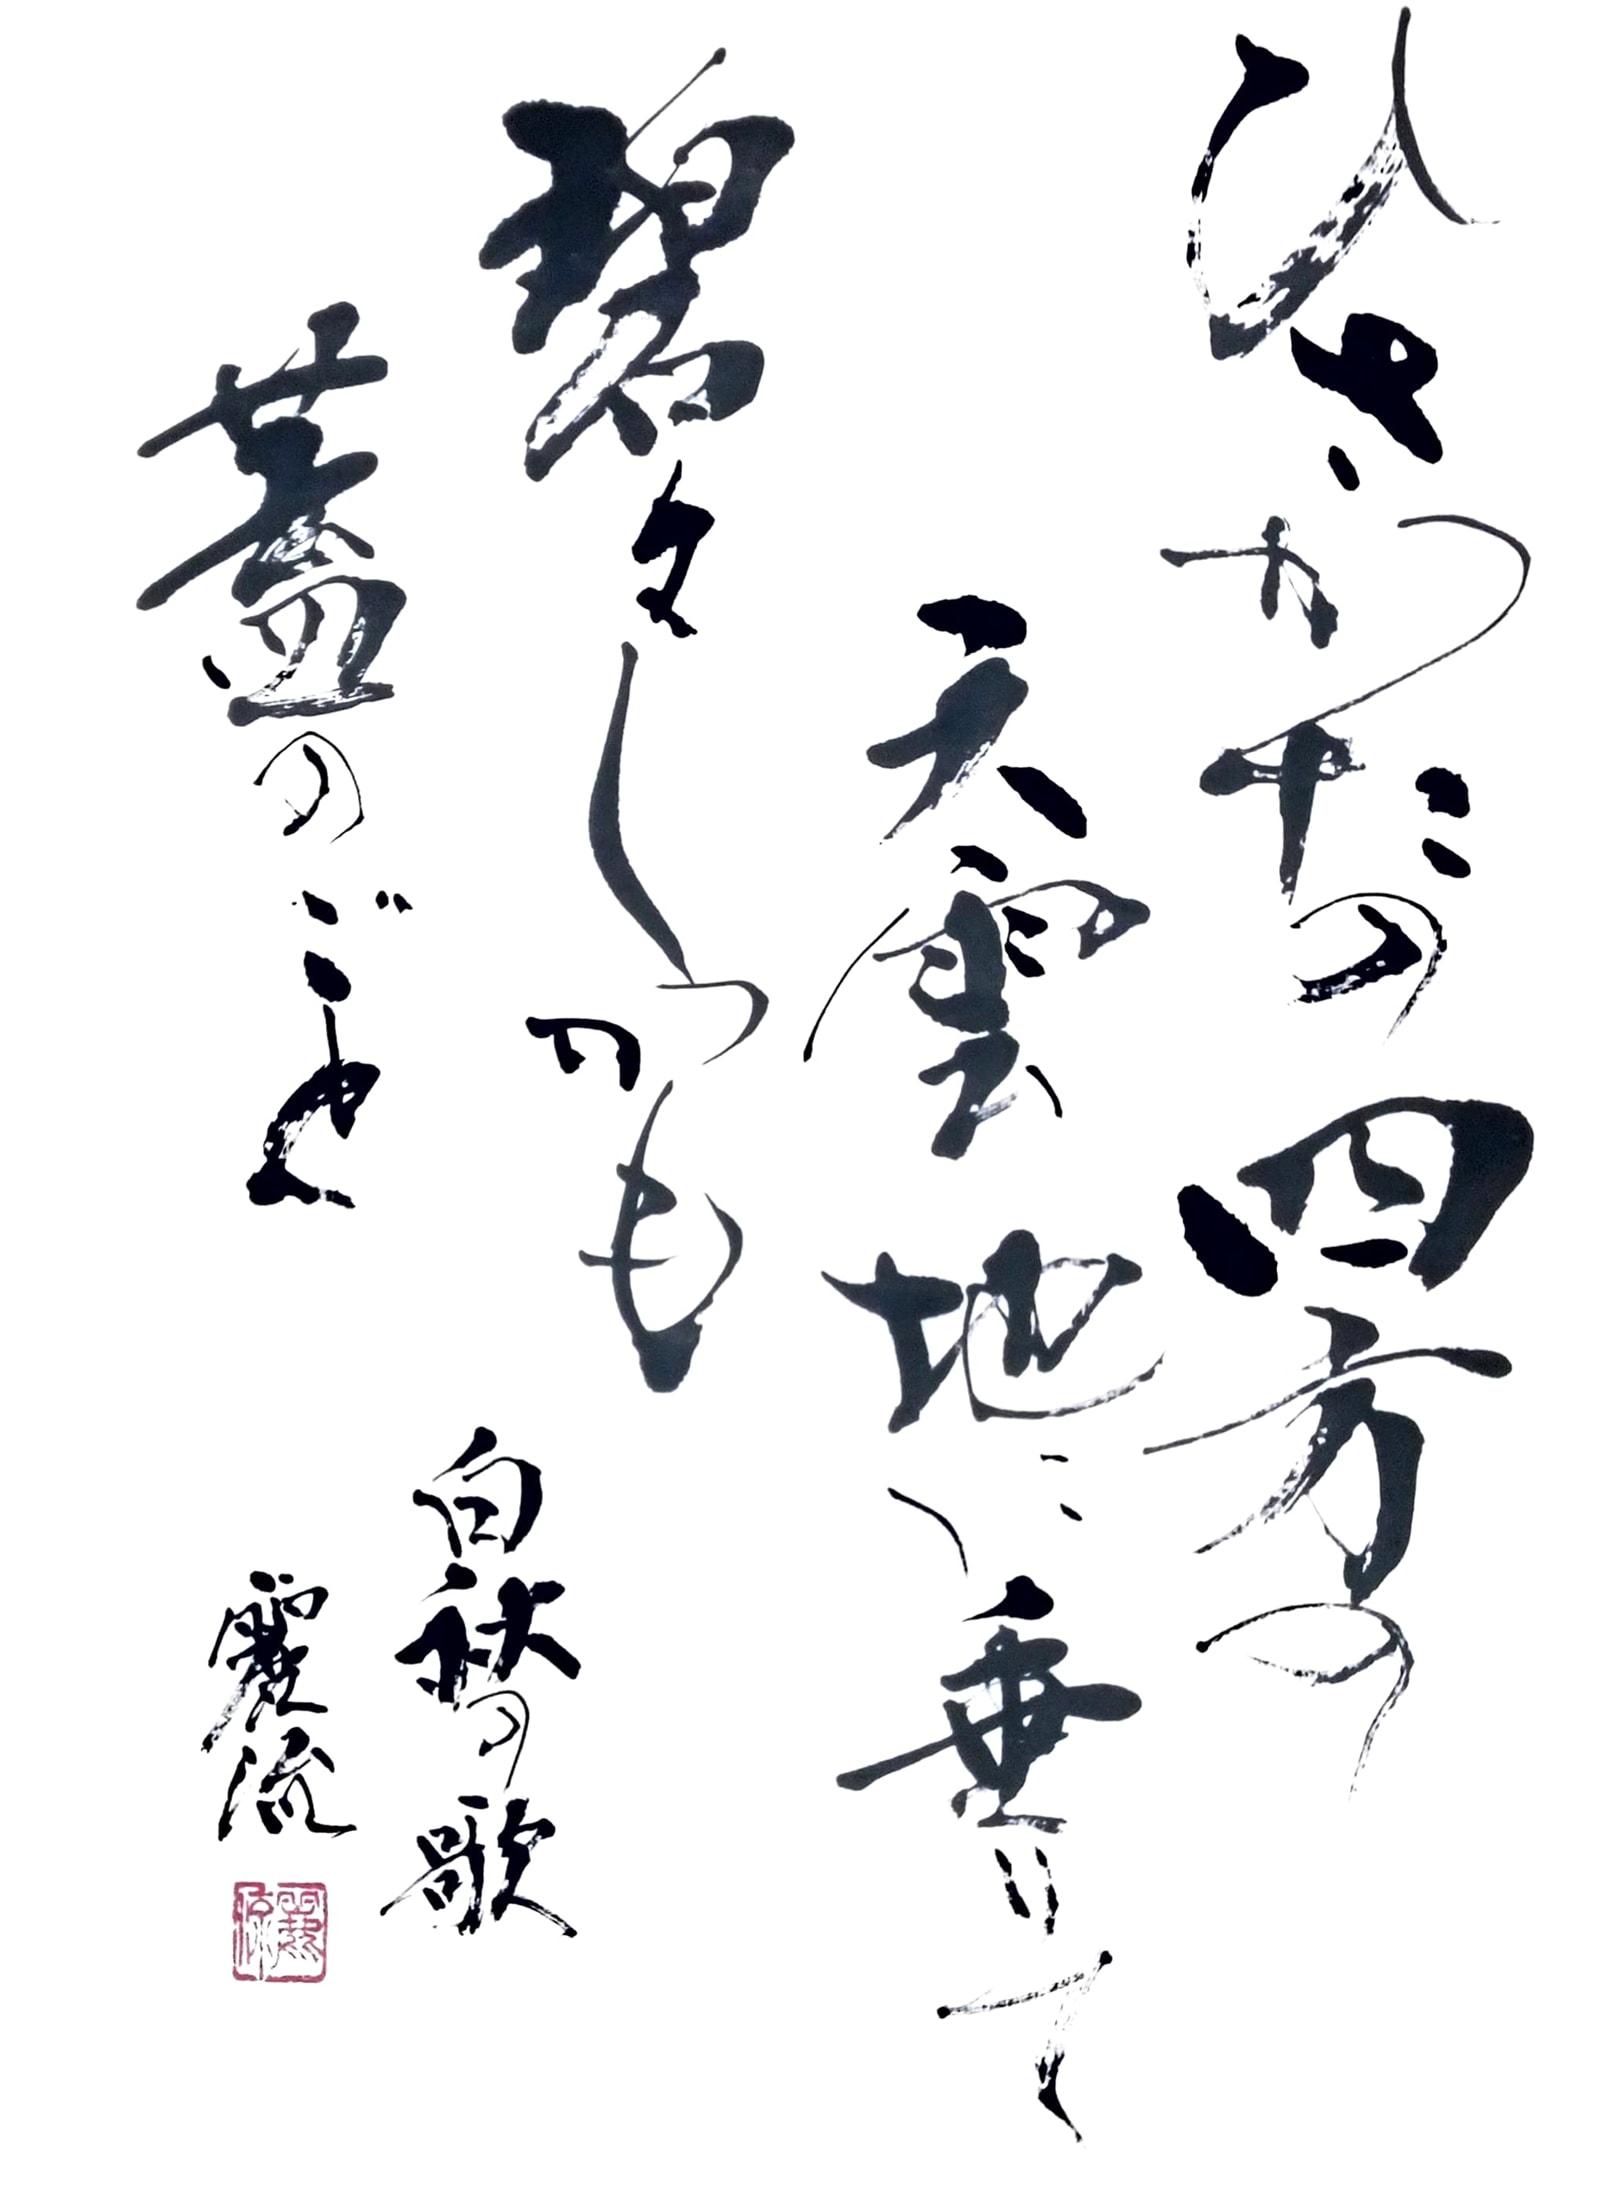 ひさかたの四方の
天雲地に垂りて
碧々しかも
蓋のごと
白秋の歌
麗流